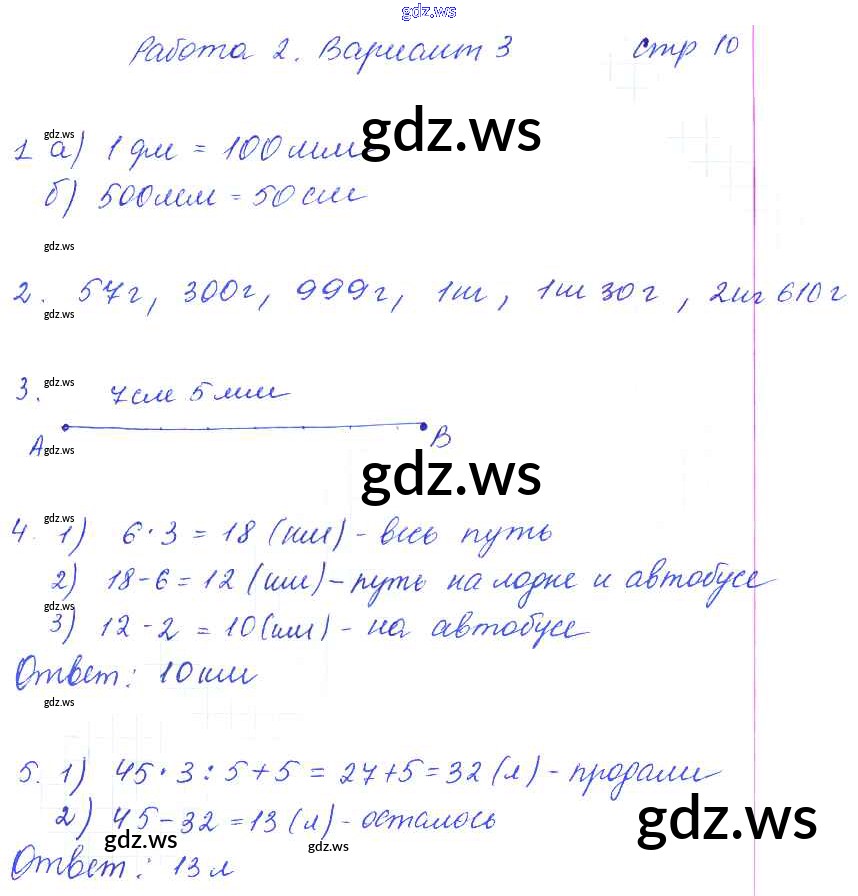 gdz.ws
Работа 2. Вариант 3 стр 10
gdz.ws
gdz.ws
1 а) 1 дм = 100 мм
б) 500мм = 50 см
gdz.ws
2. 57г, 300г, 999г, 1кг, 1кг 30г, 2кг 610г
gdz.ws
gdz.ws
3. 7см 5мм
А В
gdz.ws
gdz.ws
gdz.ws
4. 1) 6·3 = 18 (км) - весь путь
2) 18-6 = 12 (км) - путь на лодке и автобусе
gdz.ws
3) 12-2 = 10(км) - на автобусе
Ответ: 10км
gdz.ws
5. 1) 45·3:5+5 = 27+5=32 (л) - продали
gdz.ws
2) 45-32 =13 (л) - осталось
gdz.ws
gdz.ws
Ответ: 13л